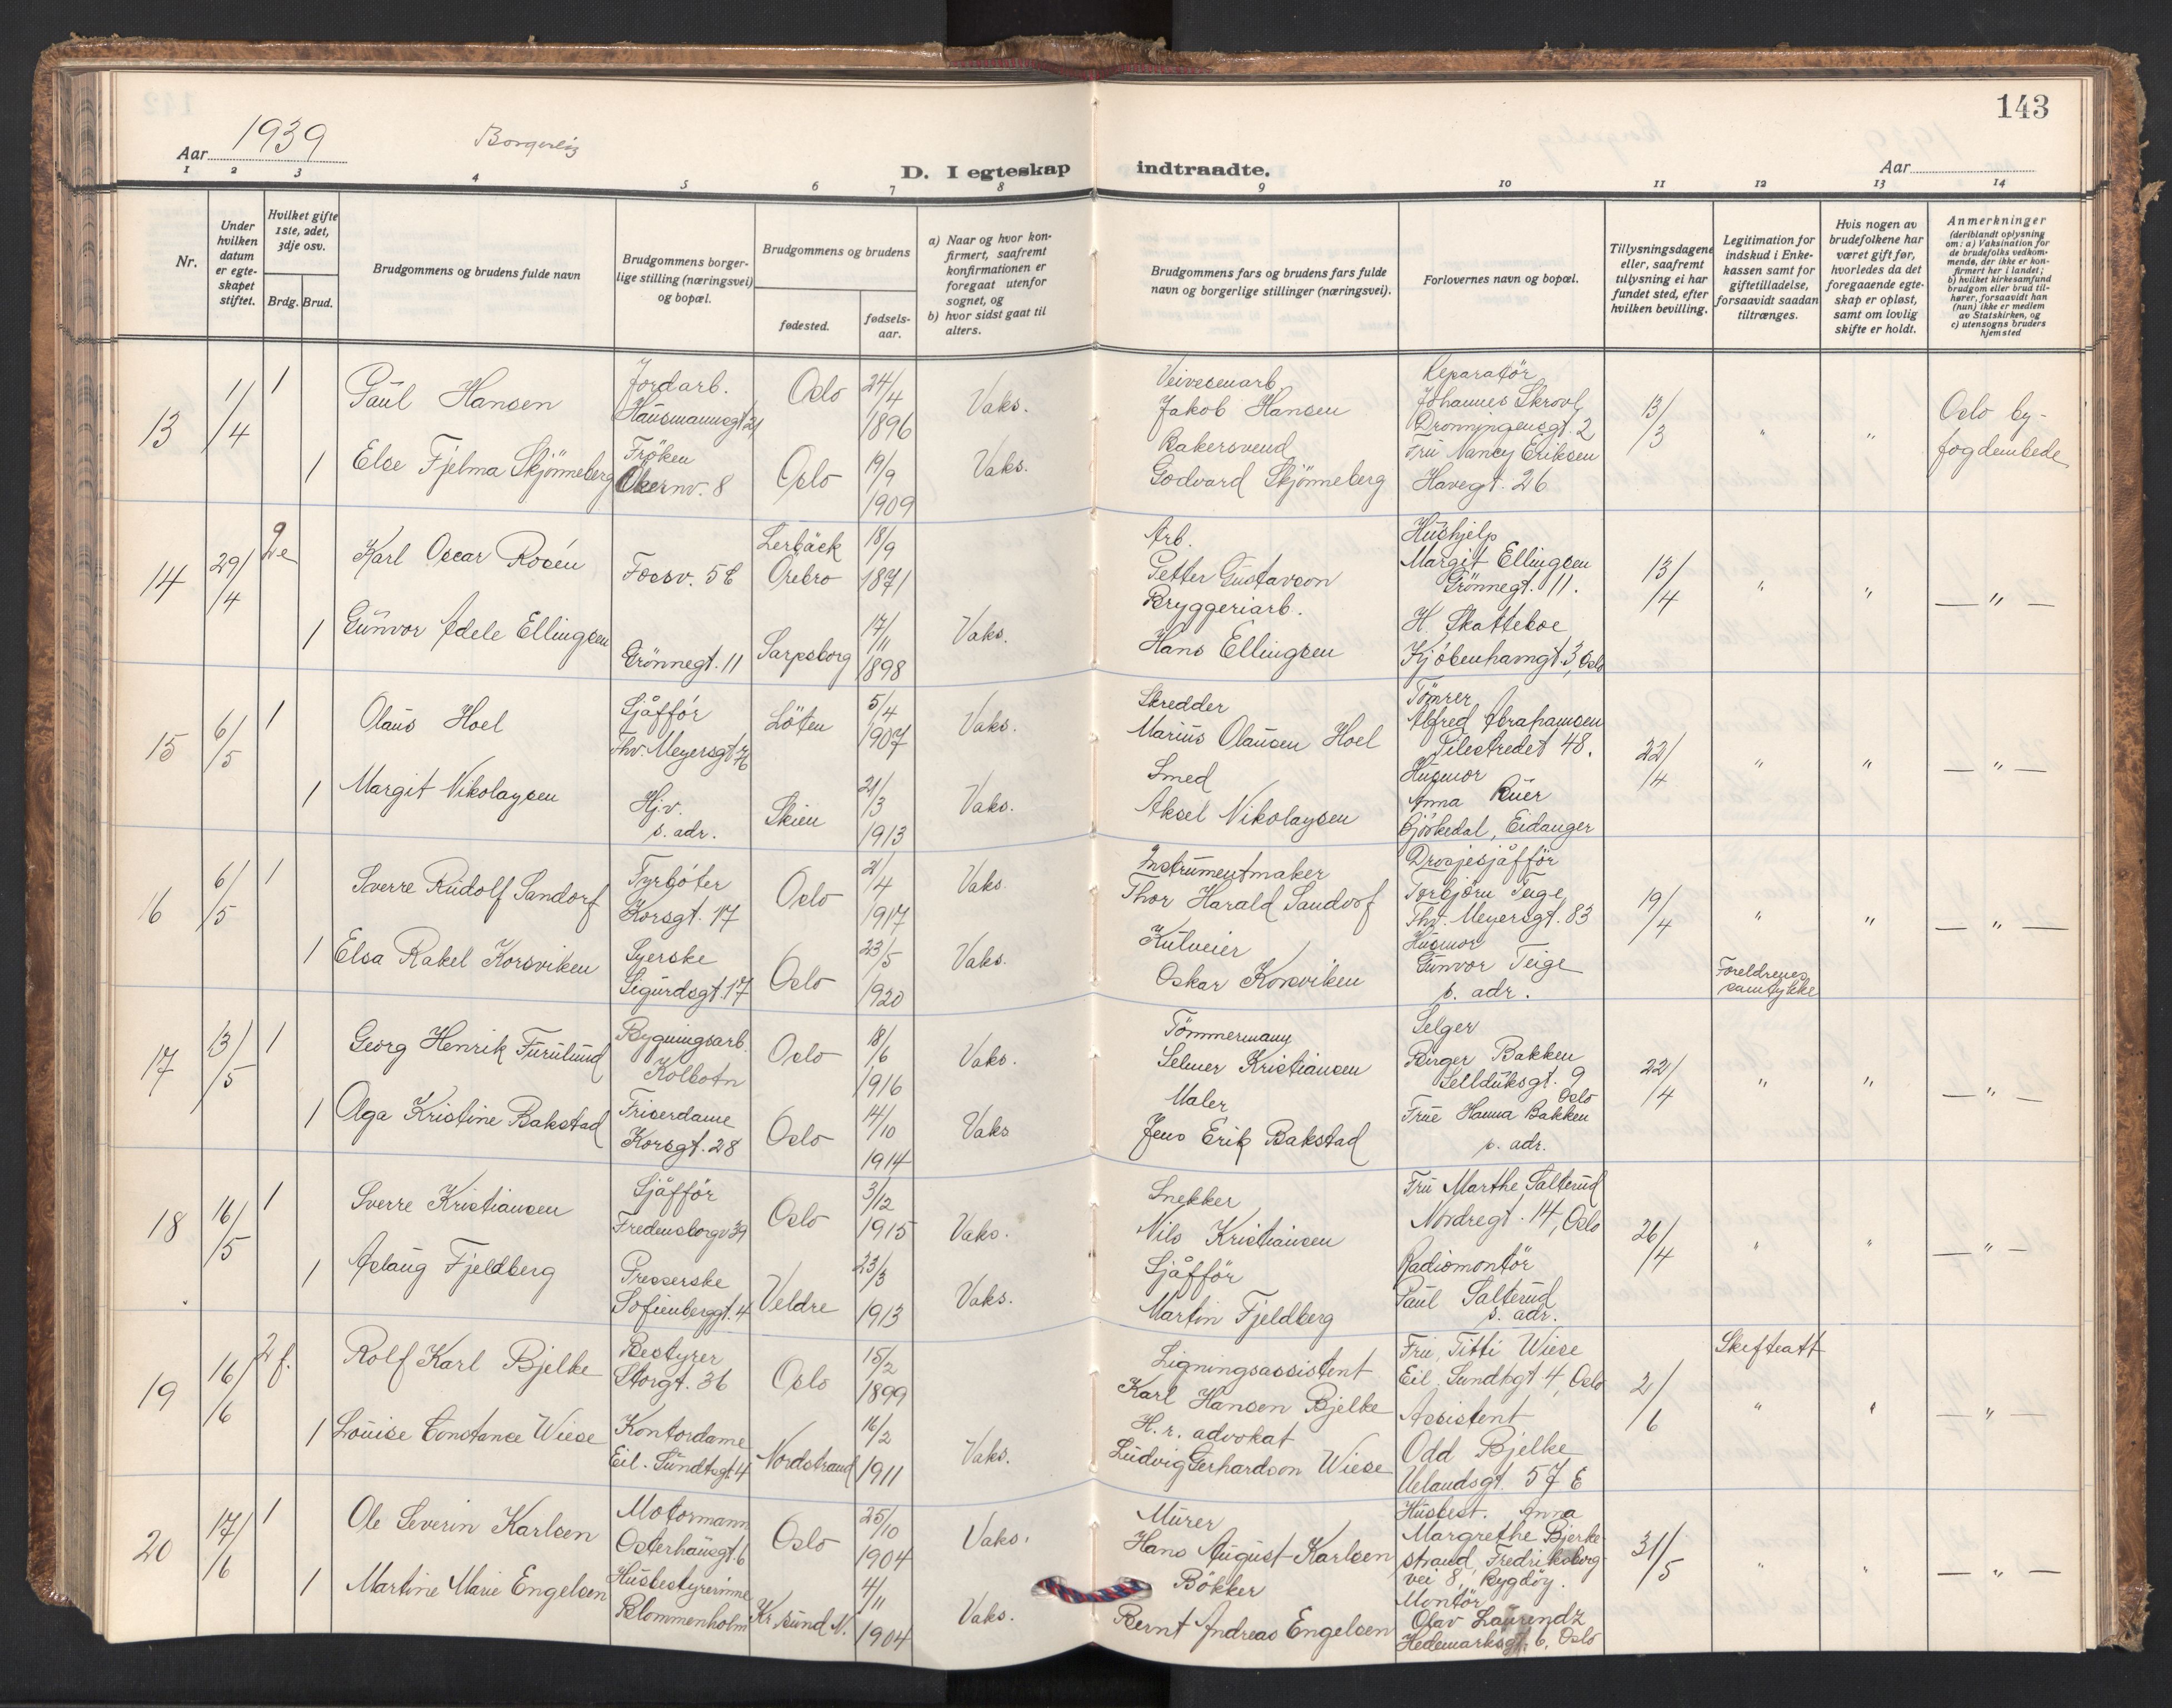 143
Aar 1939
Borgerlig
D. I egteskap indtraadte.
Aar
1 2 3 4 5 6 7 8 9 10 11 12 13 14
Nr.
Under hvilken datum er egte-skapet stiftet.
Hvilket gifte 1ste, 2det, 3dje osv.
Brdg. Brud.
Brudgommens og brudens fulde navn
Brudgommens borger-lige stilling (næringsvei) og bopæl.
Brudgommens og brudens
fødested.
fødsels-aar.
a) Naar og hvor kon-firmert, saafremt konfirmationen er foregaat utenfor sognet, og
b) hvor sidst gaat til alters.
Brudgommens fars og brudens fars fulde navn og borgerlige stillinger (næringsvei).
Forlovernes navn og bopæl.
Tillysningsdagene eller, saafremt tillysning ei har fundet sted, efter hvilken bevilling.
Legitimation for indskud i Enke-kassen samt for giftetilladelse, forsaavidt saadan tiltrænges.
Hvis nogen av brudefolkene har været gift før, hvorledes da det foregaaende egte-skap er opløst, samt om lovlig skifte er holdt.
Anmerkninger (deriblandt oplysning om: a) Vaksination for de brudefolks vedkom-mende, der ikke er kon-firmert her i landet; b) hvilket kirkesamfund brudgom eller brud til-hører, forsaavidt han (hun) ikke er medlem av Statskirken, og c) utensogns bruders hjemsted
13
1/4
1
Paul Hansen
Jordarb.
Hausmannsgt 21
Oslo
24/4 1896
Vaks.
Veivesenarb.
Jakob Hansen
Reparatør
Johannes Skrovl
Dronningensgt. 2
13/3
"
"
Oslo by-
fogdembede
1
Else Fjelma Skjønneberg
Frøken
Økernv. 8
Oslo
19/9 1909
Vaks.
Bakersvend
Godvard Skjønneberg
Fru Nancy Eriksen
Havegt. 26
14
29/4
2e
Karl Oscar Rosén
Fossv. 5 E
Lerbäck
Örebro
18/9 1871
Arb.
Petter Gustavson
Hushjelp
Margit Ellingsen
Grønnegt. 11.
13/4
"
"
— " —
1
Gunvor Adele Ellingsen
Grønnegt. 11
Sarpsborg
17/11 1898
Vaks.
Bryggeriarb.
Hans Ellingsen
H. Skatteboe
Kjøbenhavngt. 3, Oslo
15
6/5
1
Olaus Hoel
Sjåffør
Thv. Meyersgt 76
Løten
5/4 1907
Vaks.
Skredder
Marius Olausen Hoel
Tømrer
Alfred Abrahamsen
Pilestredet 48.
22/4
"
"
— " —
1
Margit Nikolaysen
Hj.v.
s. adr.
Skien
21/3 1913
Vaks.
Smed
Aksel Nikolaysen
Husmor
Anna Ruer
Bjørkedal, Eidanger
16
6/5
1
Sverre Rudolf Sandorf
Fyrbøter
Korsgt. 17
Oslo
2/4 1917
Vaks.
Instrumentmaker
Thor Harald Sandorf
Drosjesjåffør
Torbjørn Teige
Thv. Meyersgt. 83
19/4
"
"
— " —
1
Elsa Rakel Korsviken
Syerske
Sigurdsgt. 17
Oslo
23/5 1920
Vaks.
Kulveier
Oskar Korsviken
Husmor
Gunvor Teige
s. adr.
Foreldrenes
samtykke
17
13/5
1
Georg Henrik Furulund
Bygningsarb.
Kolbotn
Oslo
18/6 1916
Vaks.
Tømmermann
Selmer Kristiansen
Selger
Birger Bakken
Seilduksgt. 9
Oslo
22/4
"
"
— " —
1
Olga Kristine Bakstad
Friserdame
Korsgt. 28
Oslo
14/10 1914
Vaks
Maler
Jens Erik Bakstad
Frue Hanna Bakken
s. adr.
18
16/5
1
Sverre Kristiansen
Sjåffør
Fredensborgv 39
Oslo
3/12 1915
Vaks.
Snekker
Nils Kristiansen
Fru Marthe Salterud
Nordregt. 14, Oslo
26/4
"
"
— " —
1
Aslaug Fjeldberg
Presserske
Sofienberggt. 4
Veldre
23/3 1913
Vaks.
Sjåffør
Martin Fjeldberg
Radiomontør
Paul Salterud
s. adr.
19
16/6
2 f.
Rolf Karl Bjelke
Bestyrer
Storgt. 36
Oslo
15/2 1899
Ligningsassistent
Karl Hansen Bjelke
Fru Titti Wiese
Eil. Sundtsgt 4, Oslo
2/6
Skifteatt
"
"
— " —
1
Louise Constance Wiese
Kontordame
Eil. Sundtsgt 4
Nordstrand
16/2 1911
Vaks.
H. r. advokat
Ludvig Gerhardson Wiese
Assistent
Odd Bjelke
Uelandsgt. 57 E
20
17/6
1
Ole Severin Karlsen
Motormann
Osterhausgt. 6
Oslo
25/10 1904
Vaks.
Murer
Hans August Karlsen
Husbest. Anna
Margrethe Bjerke-
strand, Fredriksborg-
vei 8, Bygdøy.
31/5
"
"
— " —
1
Martine Marie Engelsen
Husbestyrerinne
Blommenholm
Kr.sund N.
4/11 1904
Vaks.
Bøkker
Bernt Andreas Engelsen
Montør
Olav Laurendz
Hedemarksgt. 6, Oslo